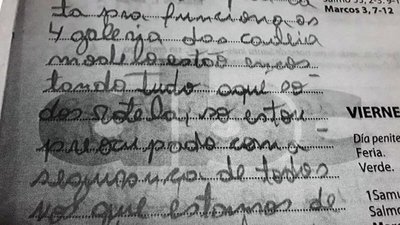 ta pra funciona os
4 galera das
modelo estão encos
tando tudo aqui
dos rotela, so estou
preocupado com a
segurança de todos
que estamos de
Marcos 3, 7-12
VIERNE
Día penite
Feria.
Verde.
1Samu
Salmo